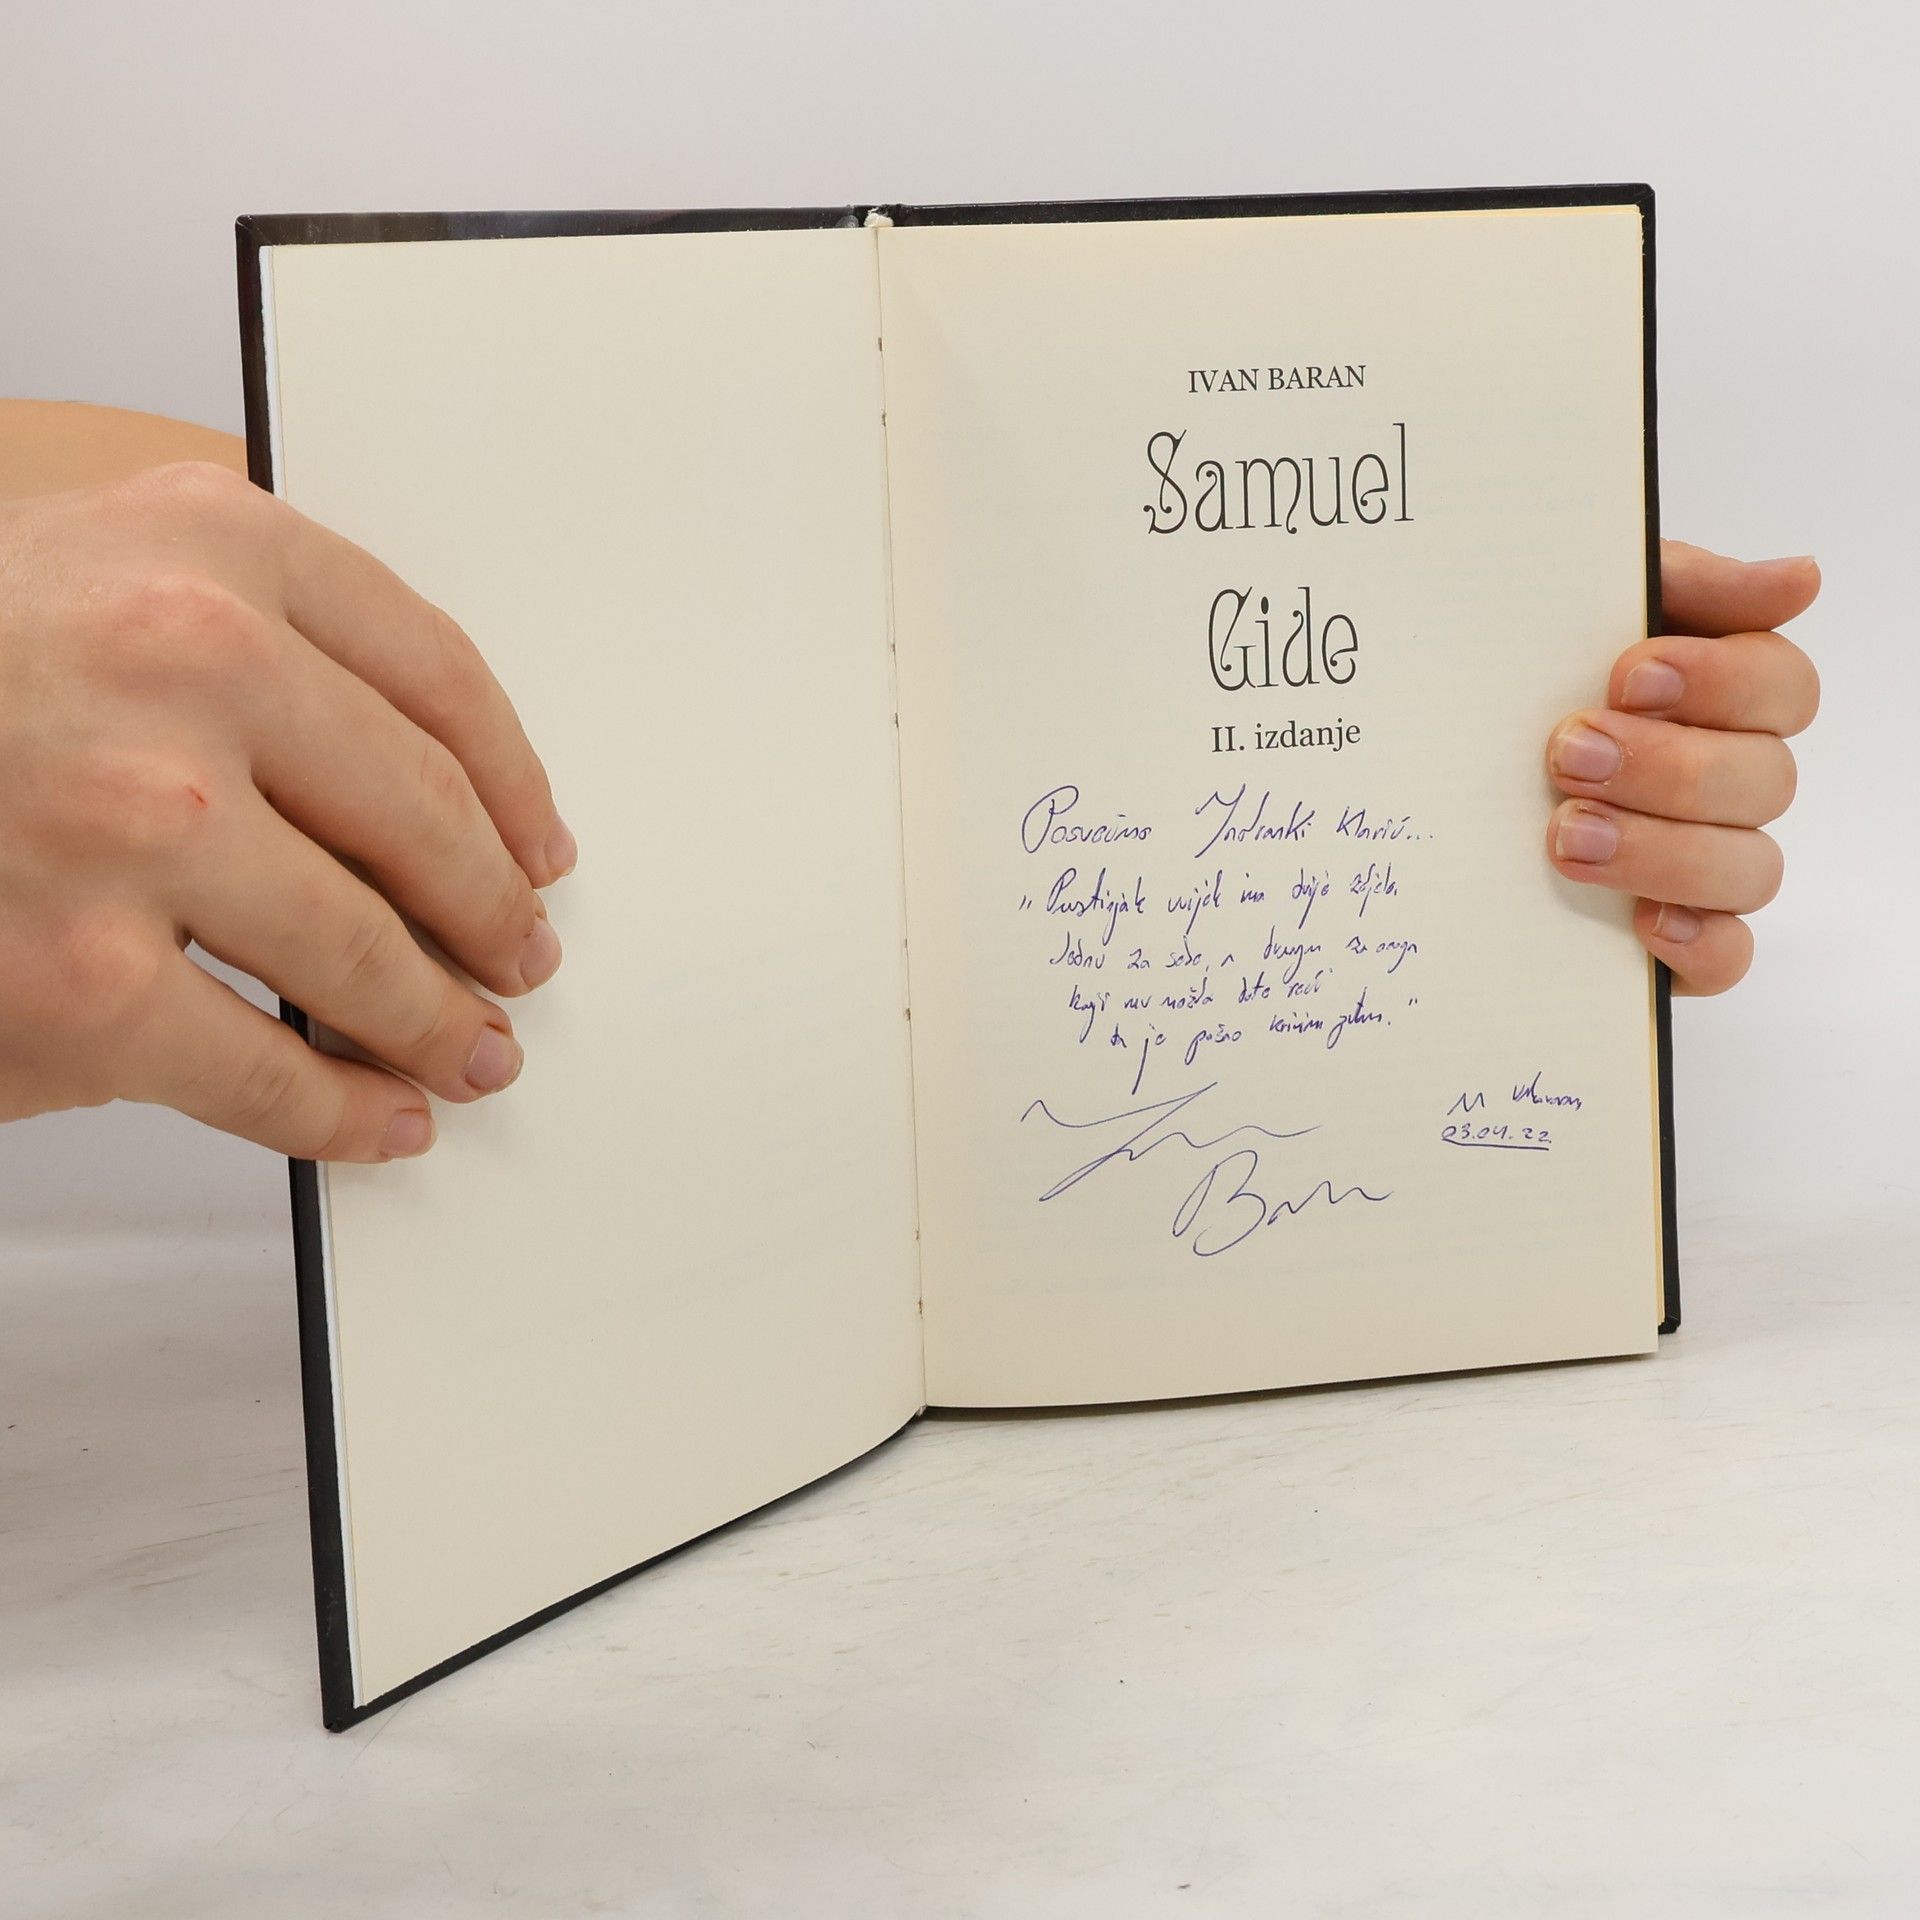 IVAN BARAN
Samuel
Gide
II. izdanje
Posvećeno Jadranki Klarić...
"Pustinjak uvijek ima dvije zdjele.
Jednu za sebe, a drugu za onoga
koji mu možda dođe reći
da je pošao krivim putem."
Ivan
Baran
U Vukovaru,
03.04.22.